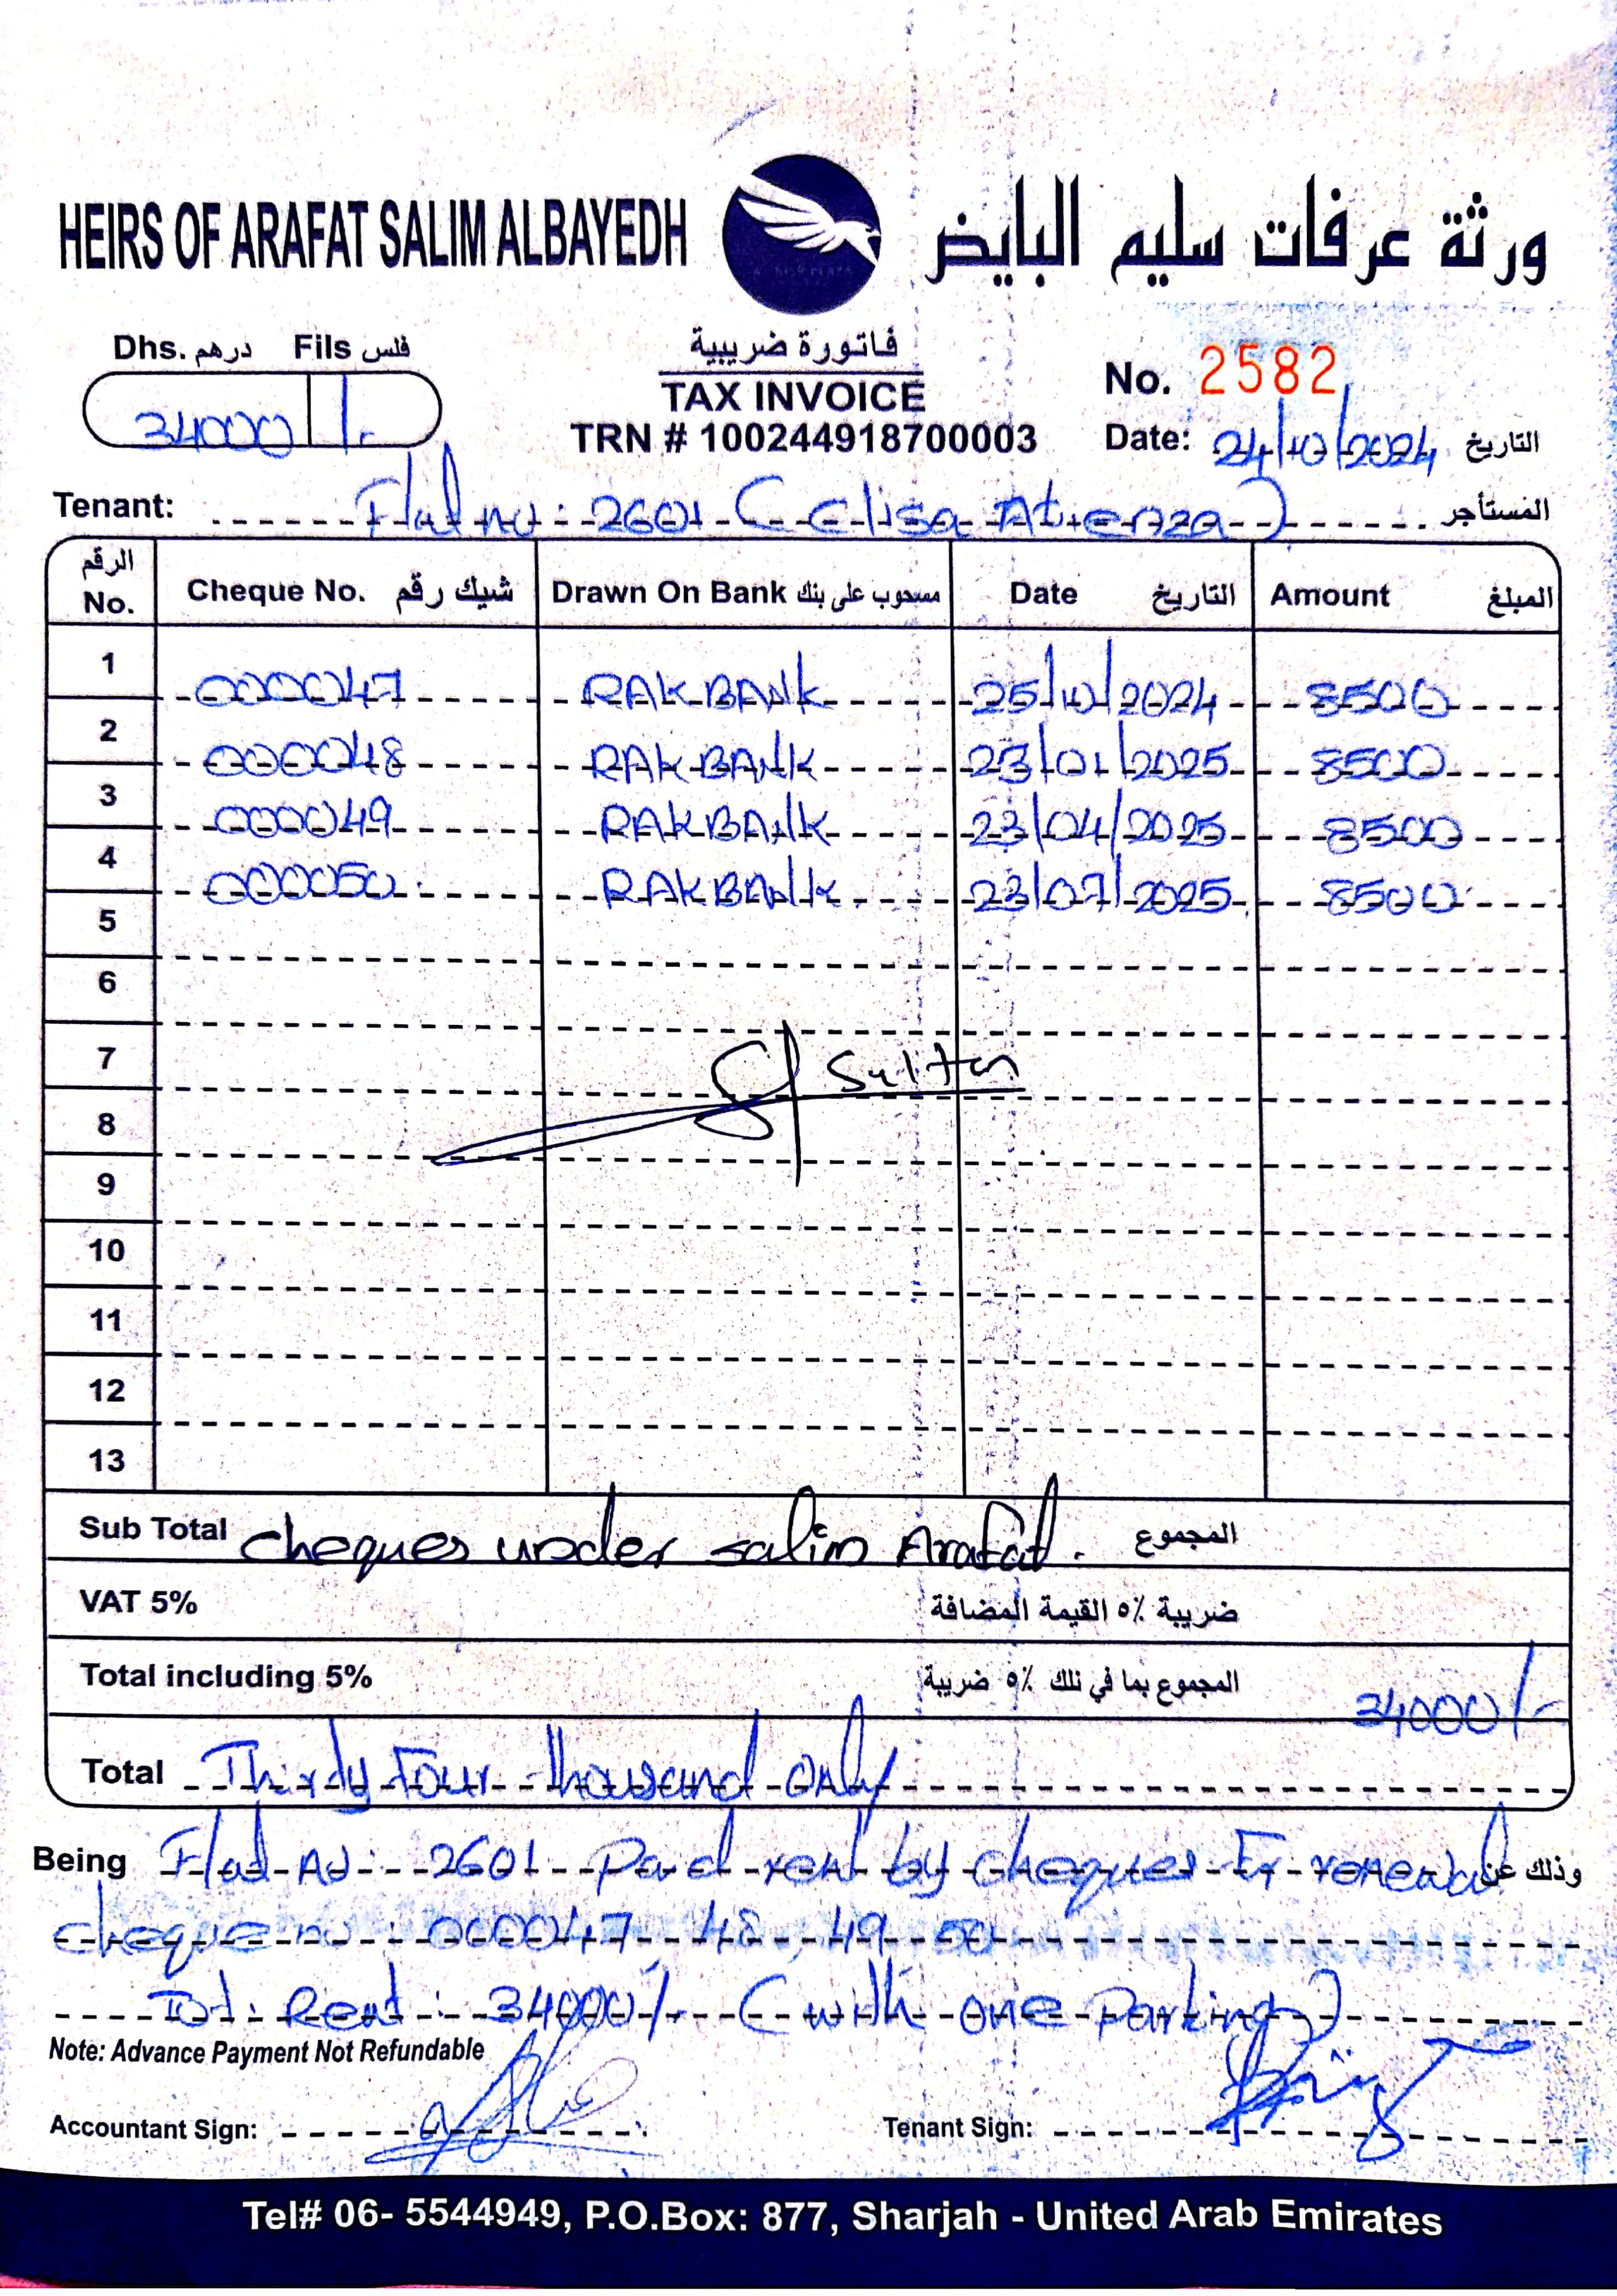 HEIRS OF ARAFAT SALIM ALBAYEDH ورثة عرفات سليم البايض
Dhs. درهم Fils فلس
34000 /-
فاتورة ضريبية
TAX INVOICE
TRN # 100244918700003
No. 2582
Date: 24/10/2024 التاريخ
Tenant: Flat no: 2601 (Elisa Atienza) المستأجر
الرقم No. Cheque No. شيك رقم Drawn On Bank مسحوب على بنك Date التاريخ Amount المبلغ
1 000047 RAKBANK 25/10/2024 8500
2 000048 RAKBANK 23/01/2025 8500
3 000049 RAKBANK 23/04/2025 8500
4 000050 RAKBANK 23/07/2025 8500
5
6
7 Sultan
8
9
10
11
12
13
Sub Total cheques under salim Arafat. المجموع
VAT 5% ضريبة ٥٪ القيمة المضافة
Total including 5% المجموع بما في تلك ٥٪ ضريبة 34000/-
Total Thirty Four thousand only
Being Flat no: 2601 Paid rent by cheques Fr renewal وذلك عن
cheque no: 000047 48, 49 50
Tot: Rent: 34000/- (with one Parking)
Note: Advance Payment Not Refundable
Accountant Sign: Tenant Sign:
Tel# 06- 5544949, P.O.Box: 877, Sharjah - United Arab Emirates